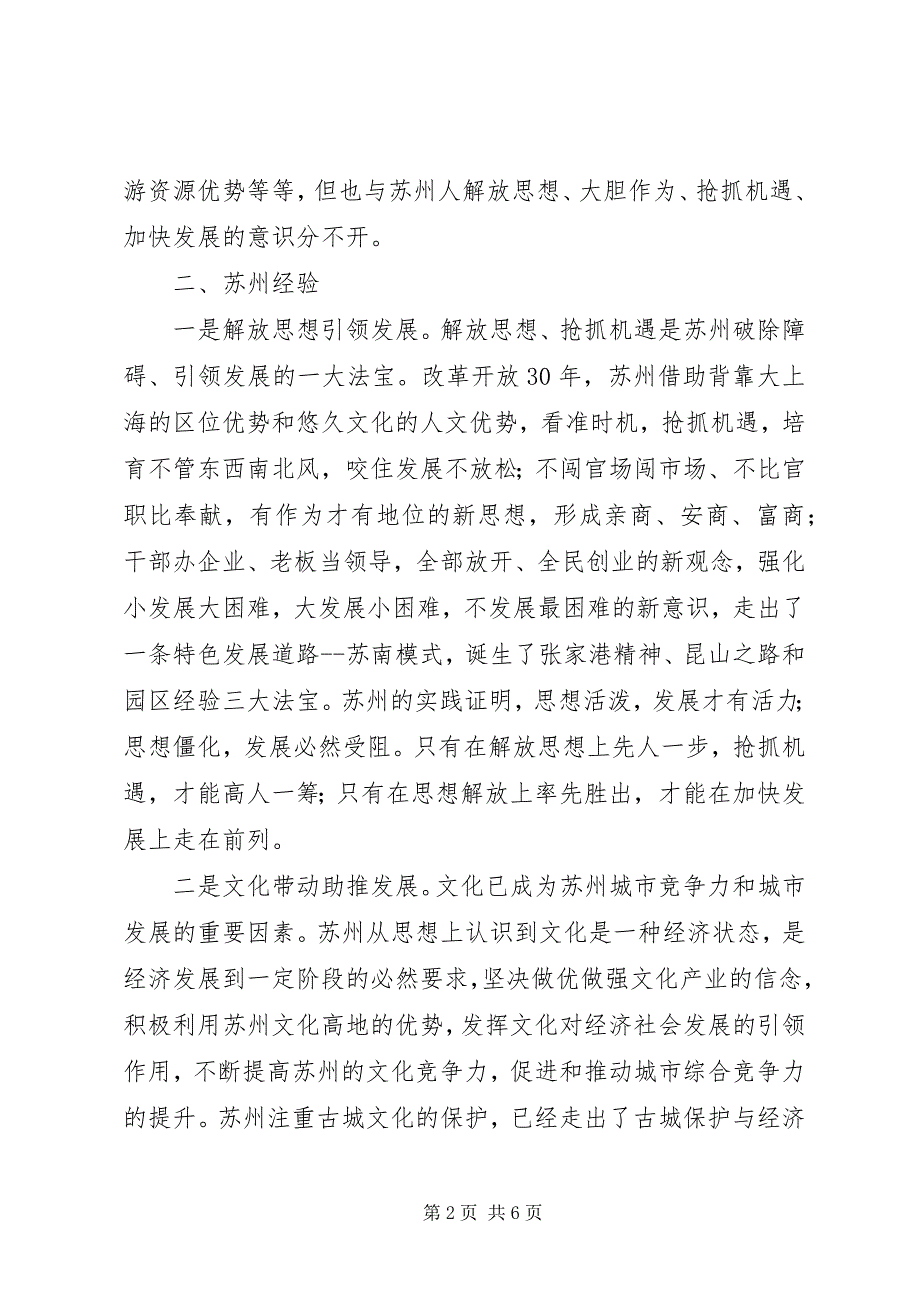 游资源优势等等，但也与苏州人解放思想、大胆作为、抢抓机遇、
加快发展的意识分不开。
二、苏州经验
一是解放思想引领发展。解放思想、抢抓机遇是苏州破除障
碍、引领发展的一大法宝。改革开放 30 年，苏州借助背靠大上
海的区位优势和悠久文化的人文优势，看准时机，抢抓机遇，培
育不管东西南北风，咬住发展不放松；不闯官场闯市场、不比官
职比奉献，有作为才有地位的新思想，形成亲商、安商、富商；
干部办企业、老板当领导，全部放开、全民创业的新观念，强化
小发展大困难，大发展小困难，不发展最困难的新意识，走出了
一条特色发展道路--苏南模式，诞生了张家港精神、昆山之路和
园区经验三大法宝。苏州的实践证明，思想活泼，发展才有活力；
思想僵化，发展必然受阻。只有在解放思想上先人一步，抢抓机
遇，才能高人一筹；只有在思想解放上率先胜出，才能在加快发
展上走在前列。
二是文化带动助推发展。文化已成为苏州城市竞争力和城市
发展的重要因素。苏州从思想上认识到文化是一种经济状态，是
经济发展到一定阶段的必然要求，坚决做优做强文化产业的信念，
积极利用苏州文化高地的优势，发挥文化对经济社会发展的引领
作用，不断提高苏州的文化竞争力，促进和推动城市综合竞争力
的提升。苏州注重古城文化的保护，已经走出了古城保护与经济
第 2 页 共 6 页